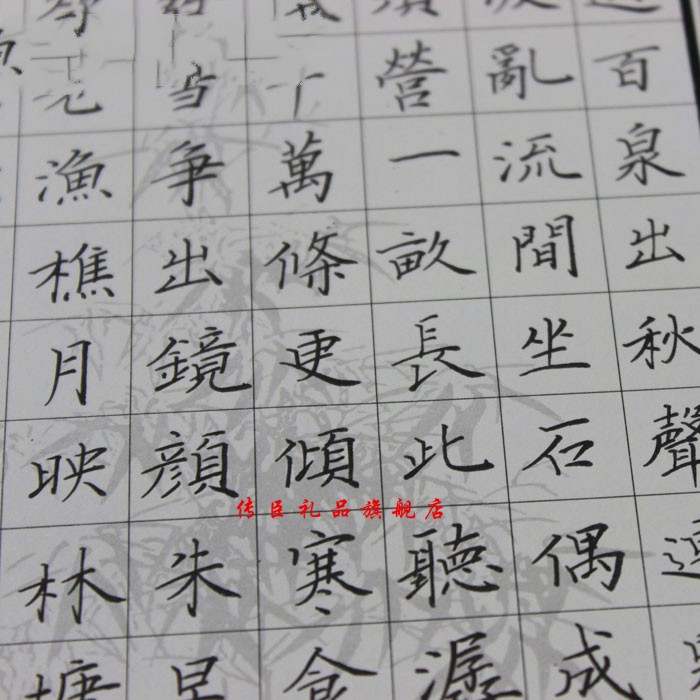 百泉出秋聲
亂流間坐石偶成
營一畝長此聽潺
萬條更傾寒食
争出鏡顔朱
漁樵月映林塘
传臣礼品旗舰店